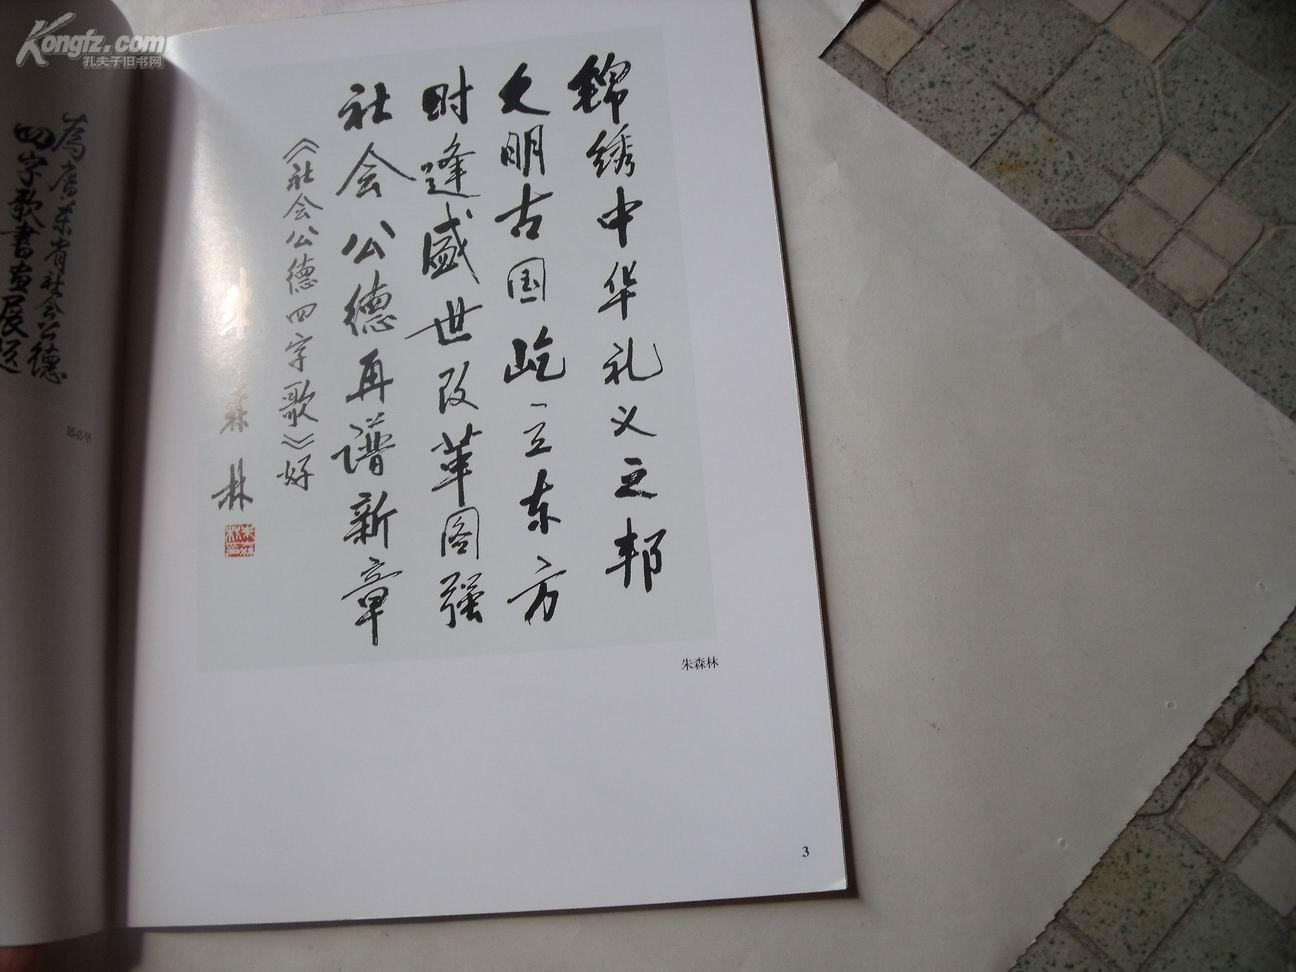 Kongfz.com
孔夫子旧书网
锦绣中华礼义之邦
文明古国屹立东方
时逢盛世改革图强
社会公德再谱新章
《社会公德四字歌》好
朱森林
朱森林
3
为广东省社会公德
四字歌书画展题